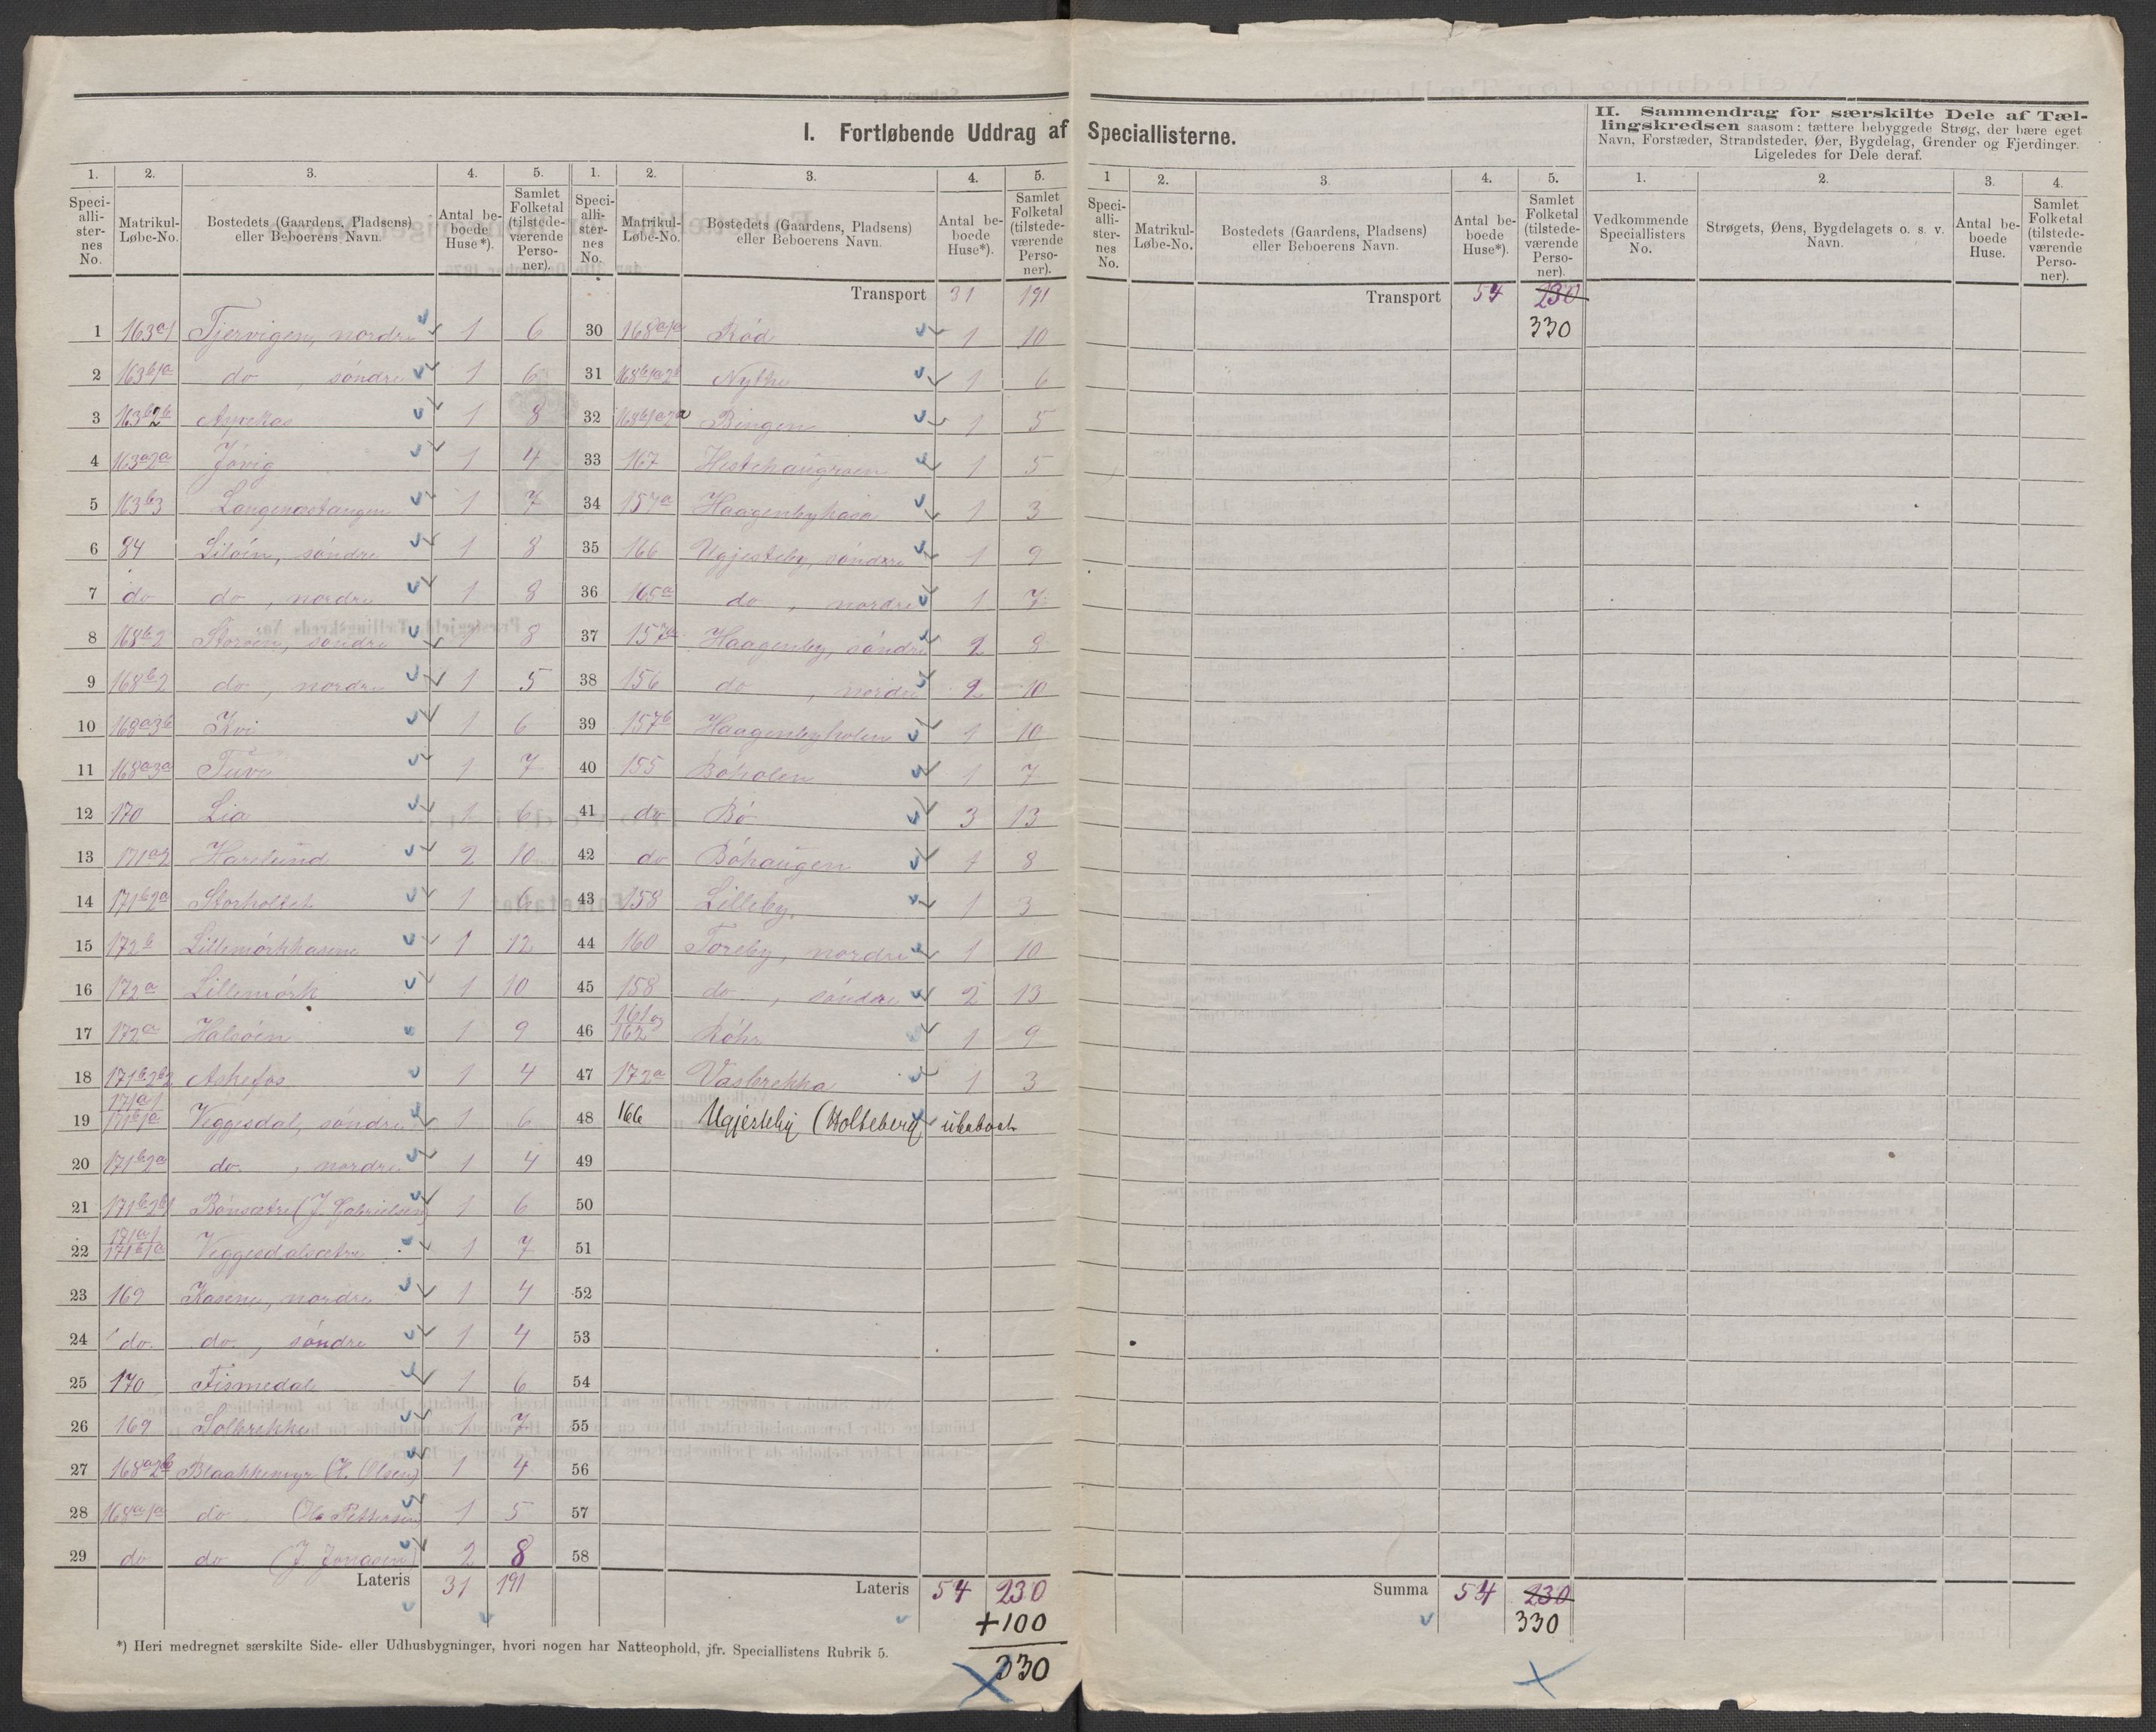 I. Fortløbende Uddrag af Speciallisterne.
II. Sammendrag for særskilte Dele af Tæl-
lingskredsen saasom: tættere bebyggede Strøg, der bære eget
Navn, Forstæder, Strandsteder, Øer, Bygdelag, Grender og Fjerdinger.
Ligeledes for Dele deraf.
1. 2. 3. 4. 5. 1. 2. 3. 4. 5.
Speci-alli-ster-nes No. Matrikul-Løbe-No. Bostedets (Gaardens, Pladsens) eller Beboerens Navn. Antal be-boede Huse*). Samlet Folketal (tilstede-værende Perso-ner).
Speci-alli-ster-nes No. Matrikul-Løbe-No. Bostedets (Gaardens, Pladsens) eller Beboerens Navn. Antal be-boede Huse*). Samlet Folketal (tilstede-værende Perso-ner).
1 2. 3. 4. 5. 1. 2. 3. 4.
Speci-alli-ster-nes No. Matrikul-Løbe-No. Bostedets (Gaardens, Pladsens) eller Beboerens Navn. Antal be-boede Huse*). Samlet Folketal (tilstede-værende Perso-ner).
Vedkommende Speciallisters No. Strøgets, Øens, Bygdelagets o. s. v. Navn. Antal be-boede Huse. Samlet Folketal (tilstede-værende Perso-ner).
1 163a1 Tjervigen, nordre 1 6
2 163b1a do, søndre 1 6
3 163b2b 1 8
4 163a2a Jövig 1 4
5 163b3 Langenæstangen 1 7
6 84 Litöin, søndre 1 8
7 do do, nordre 1 8
8 168b2 Storöin, søndre 1 8
9 168b2 do, nordre 1 5
10 168a3b Kvi 1 6
11 168a3a Tuve 1 7
12 170 Lia 1 6
13 171a2 Harelund 2 10
14 171b2a Storholtet 1 6
15 172b Lillemörkkasene 1 12
16 172a Lillemörk 1 10
17 172a Halsöen 1 9
18 171b2b2 Askefos 1 4
19 171a1 171b1a Veggesdal, søndre 1 6
20 171b2a do, nordre 1 4
21 171b2b1 Bönsætre (J. Gabrielsen) 1 6
22 171a1 171b1a Veggesdalsætre 1 7
23 169 Kasene, nordre 1 4
24 do. do., søndre 1 4
25 170 Fismedal 1 6
26 169 Solbrekke 1 7
27 168a2b Blaakkemyr (H. Olsen) 1 4
28 168a1a do Ole Pettersen 1 5
29 do do (J. Jonasen) 2 8
Lateris 31 191
Transport 31 191
30 168a1a Röd 1 10
31 168b1a2b Nythe 1 6
32 168b1a2a Bingen 1 5
33 167 Hestehaugroen 1 5
34 157a Haagenbyhasa 1 3
35 166 Ugjesteby, søndre 1 9
36 165a do, nordre 1 7
37 157a Haagenby, søndre 2 8
38 156 do, nordre 2 10
39 157b Haagenbyholen 1 10
40 155 Böholen 1 7
41 do Bö 3 13
42 do Böhaugen 1 8
43 158 Lilleby. 1 3
44 160 Toreby, nordre 1 10
45 158 do, søndre 2 13
46 161 og 162 Röhr 1 9
47 172a Vasbrekka 1 3
48 166 Ugjesteby (Holteberg) ubeboet
49
50
51
52
53
54
55
56
57
58
Lateris 54 230
+100
330
Transport 54 230
330
Summa 54 230
330
*) Heri medregnet særskilte Side- eller Udhusbygninger, hvori nogen har Natteophold, jfr. Speciallistens Rubrik 5.